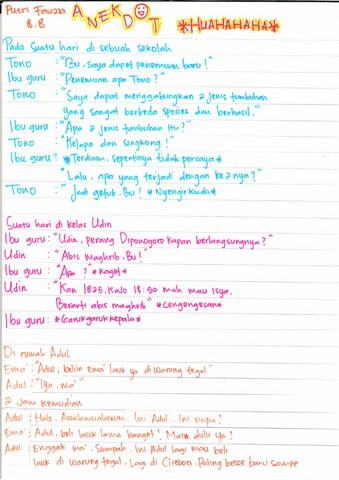 Putri Fauzia
8.8
ANEKDOT
*HUAHAHAHA*
Pada suatu hari di sebuah sekolah
Tono : "Bu, saya dapet penemuan baru!"
Ibu guru : "Penemuan apa Tono?"
Tono : "Saya dapat menggabungkan 2 jenis tumbuhan
yang sangat berbeda species dan berhasil."
Ibu guru : "Apa 2 jenis tumbuhan itu?"
Tono : "Kelapa dan singkong!"
Ibu guru : *Terdiam, sepertinya tidak percaya*
"Lalu, apa yang terjadi dengan ke2nya?"
Tono : "Jadi getuk, Bu! *Nyengir kuda*
Suatu hari di kelas Udin
Ibu guru : "Udin, perang Diponogoro kapan berlangsungnya?"
Udin : "Abis maghrib, Bu!"
Ibu guru : "Apa? *kaget*
Udin : "Kan 1825, kalo 18:50 mah mau isya.
Berarti abis maghrib" *cengengesan*
Ibu guru : *Garukgaruk kepala*
Di rumah Adul
Ema' : "Adul, beliin ema' lauk ya di warung tegal"
Adul : "Iya, ma'"
2 Jam kemudian
Adul : Halo, Assalamualaikum. Ini Adul. Ini siapa?
Ema' : Adul, beli lauk lama banget! Main dulu ya!
Adul : Enggak ma'. Sumpah. Ini Adul lagi mau beli
lauk di warung tegal. Lagi di Cirebon. Paling besok baru sampe